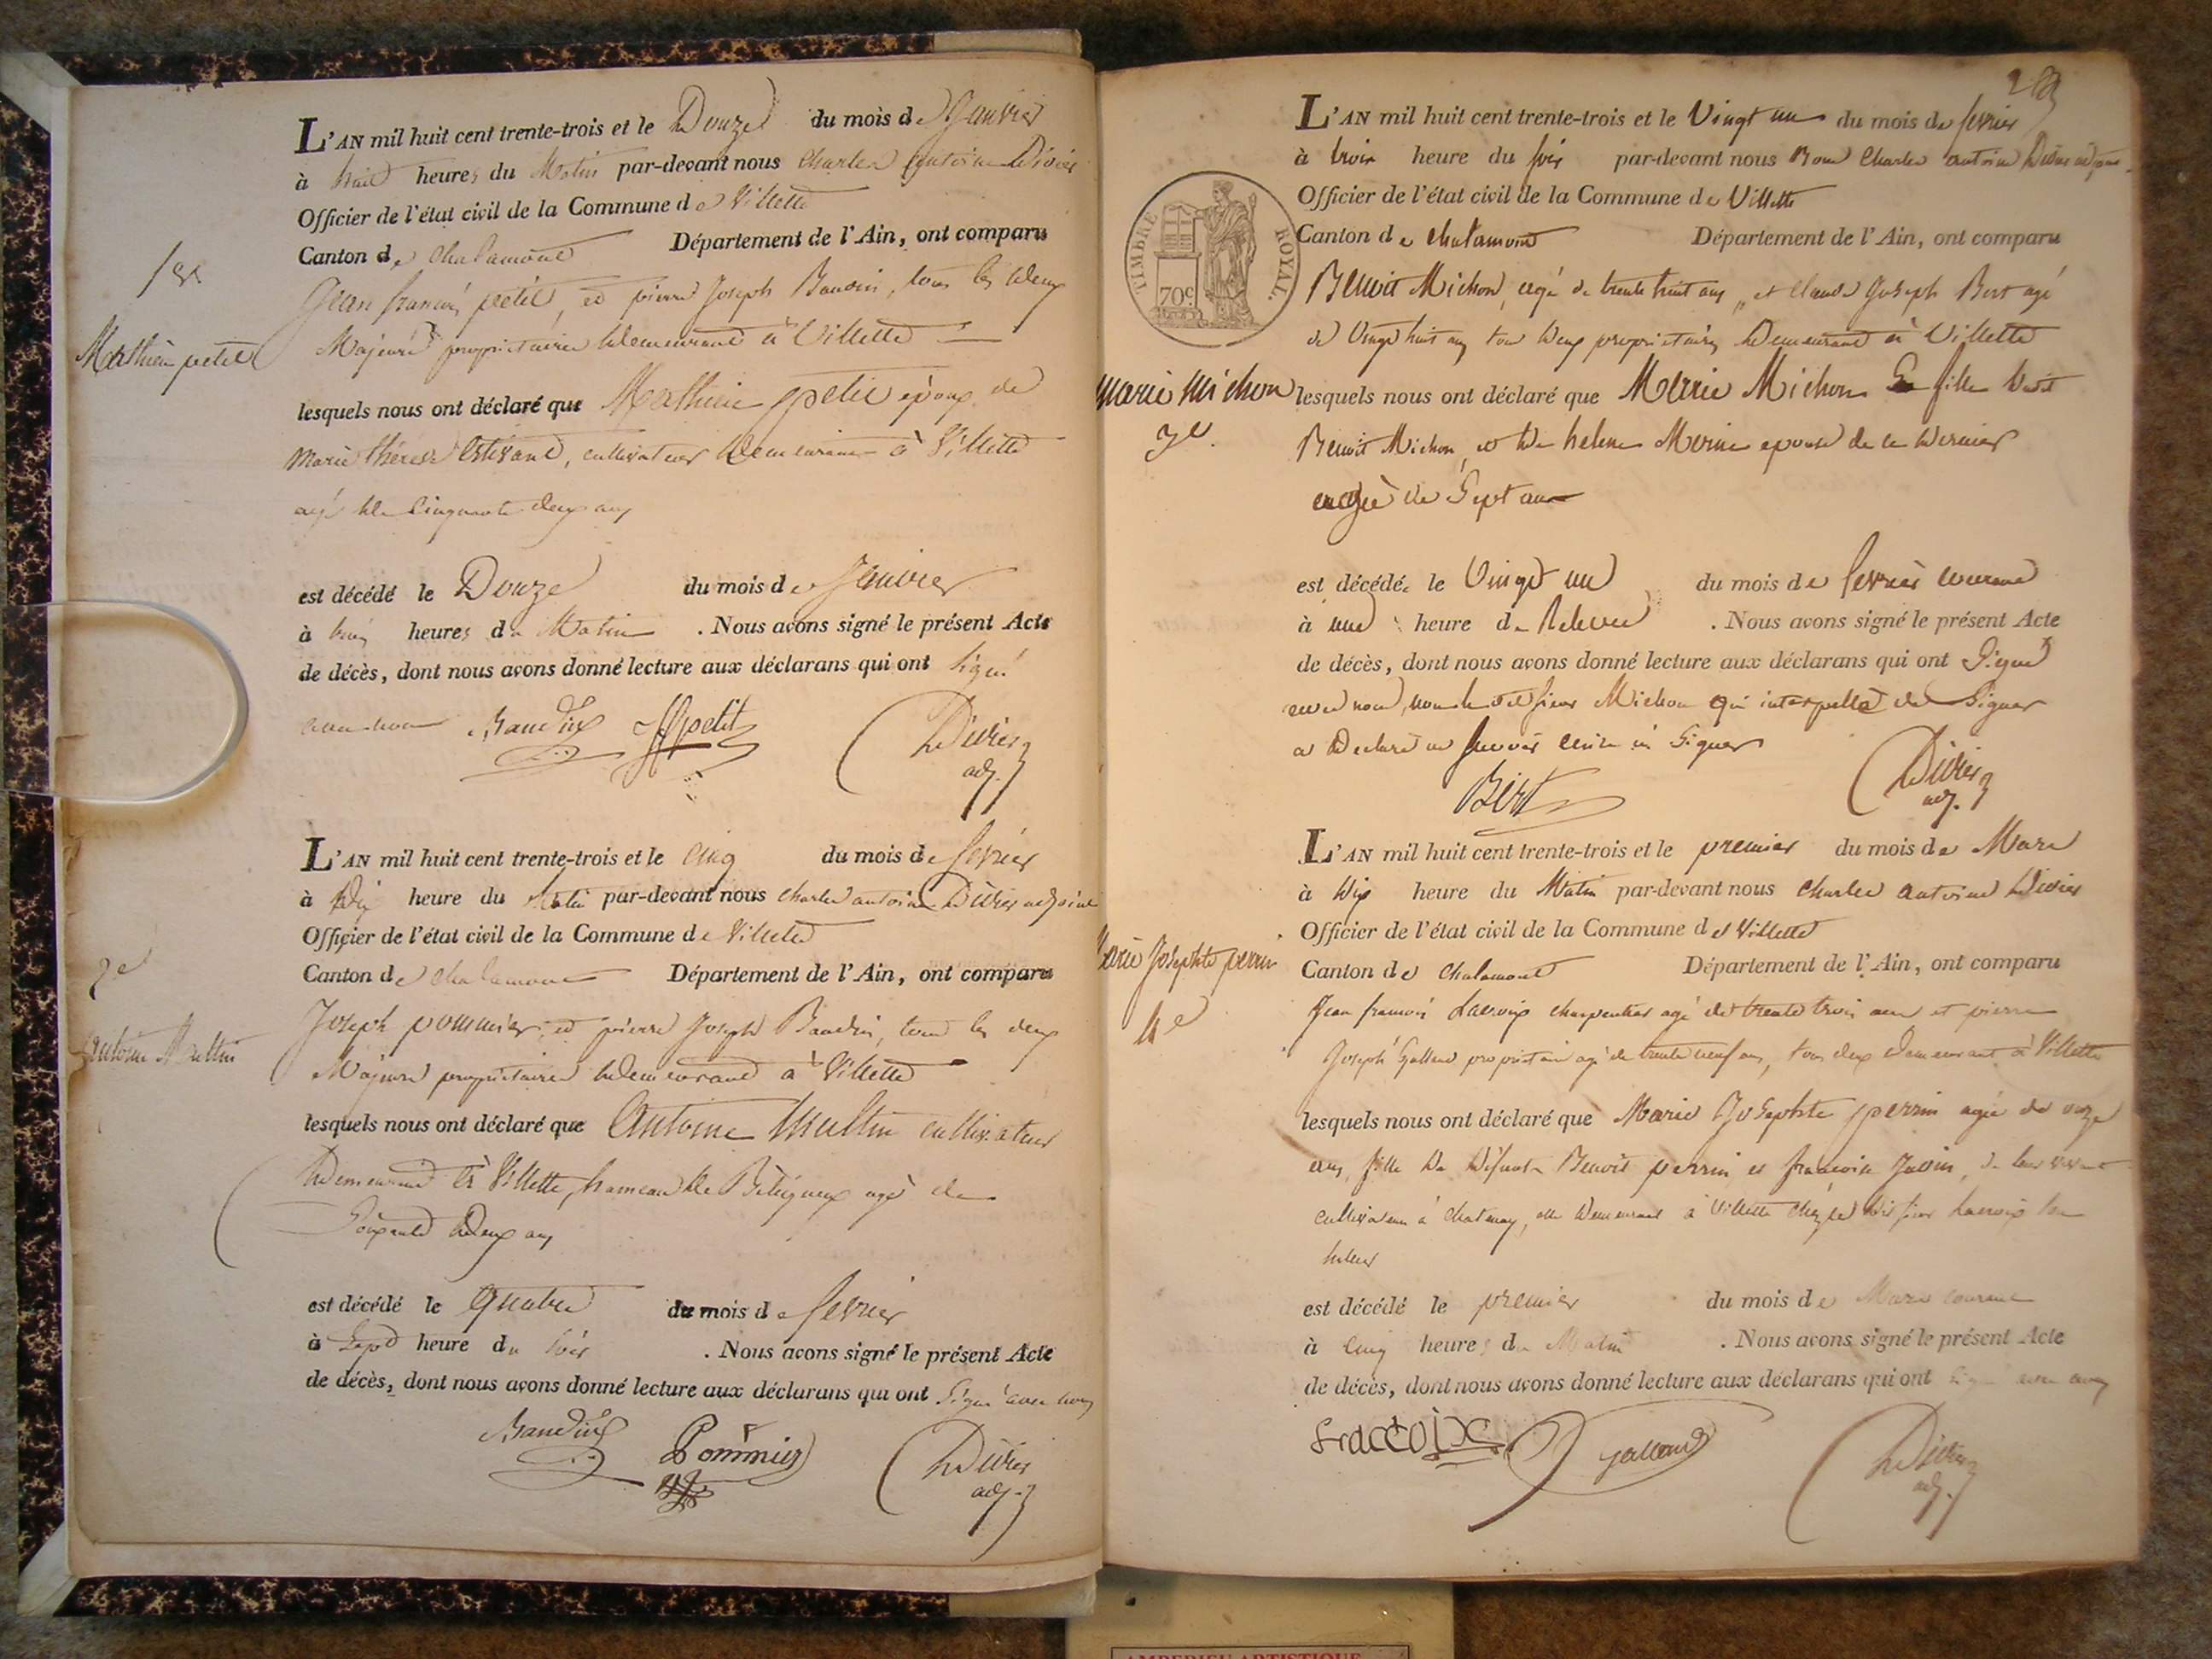 L'AN mil huit cent trente-trois et le Douze du mois de Janvier
à huit heures du Matin par-devant nous Charles antoine Divier
Officier de l'état civil de la Commune de Villette
Canton de Chalamont Département de l'Ain, ont comparu
1er
Jean françois petit, et pierre Joseph Baudin, tous les deux
Mathieu petit
Majeurs propriétaires demeurant à Villette
lesquels nous ont déclaré que Mathieu petit époux de
Marie thérèse, cultivateur demeurant à Villette
agé de Cinquante deux ans
est décédé le Douze du mois de Janvier
à heures du Matin . Nous avons signé le présent Acte
de décès, dont nous avons donné lecture aux déclarans qui ont signé
avec nous Baudin JFpetit Divier
adj.
L'AN mil huit cent trente-trois et le cinq du mois de fevrier
à Dix heure du Matin par-devant nous charles antoine Divier adjoint
Officier de l'état civil de la Commune de Villette
2e
Canton de chalamont Département de l'Ain, ont comparu
Joseph pommier, et pierre Joseph Baudin, tous les deux
antoine Multin
Majeurs propriétaires demeurant à Villette
lesquels nous ont déclaré que Antoine Multin cultivateur
demeurant à Villette, hameau de agé de
Soixante Deux ans
est décédé le Quatre du mois de fevrier
à Sept heure du soir . Nous avons signé le présent Acte
de décès, dont nous avons donné lecture aux déclarans qui ont Signé avec nous
Baudin Pommier Divier
adj.
L'AN mil huit cent trente-trois et le Vingt un du mois de fevrier
à trois heure du soir par-devant nous Charles antoine Divier adjoint
Officier de l'état civil de la Commune de Villette
Canton de chalamont Département de l'Ain, ont comparu
TIMBRE ROYAL.
70c
Benoit Michon, agé de trente huit ans, et Claude Joseph Bert agé
de Vingt huit ans tous deux propriétaires Demeurant à Villette
Marie Michon
lesquels nous ont déclaré que Marie Michon fille dudit
3e.
Benoit Michon, et de helene Morine epouse de ce dernier
agée de Sept ans
est décédée le Vingt un du mois de fevrier courant
à une heure de Relevée . Nous avons signé le présent Acte
de décès, dont nous avons donné lecture aux déclarans qui ont Signé
avec nous, non le dit sieur Michon qui interpellé de Signer
a Declaré ne savoir ecrire ni Signer
Bert Divier
adj.
L'AN mil huit cent trente-trois et le premier du mois de Mars
à dix heure du Matin par-devant nous charles antoine Divier
Officier de l'état civil de la Commune de Villette
Marie Josephte perrin
Canton de Chalamont Département de l'Ain, ont comparu
4e
Jean francois Lacroix charpentier agé de trente trois ans et pierre
Joseph Galland propriétaire agé de trente neuf ans, tous deux demeurant à Villette
lesquels nous ont déclaré que Marie Josephte perrin agée de onze
ans, fille de défunts Benoit perrin et françoise, de leur vivant
cultivateurs à chatenay, elle demeurant à Villette chez le dit sieur Lacroix
est décédé le premier du mois de Mars courant
à cinq heures du Matin . Nous avons signé le présent Acte
de décès, dont nous avons donné lecture aux déclarans qui ont signé avec nous
Lacroix Galland Divier
adj.
AMBERIEU ARTISTIQUE